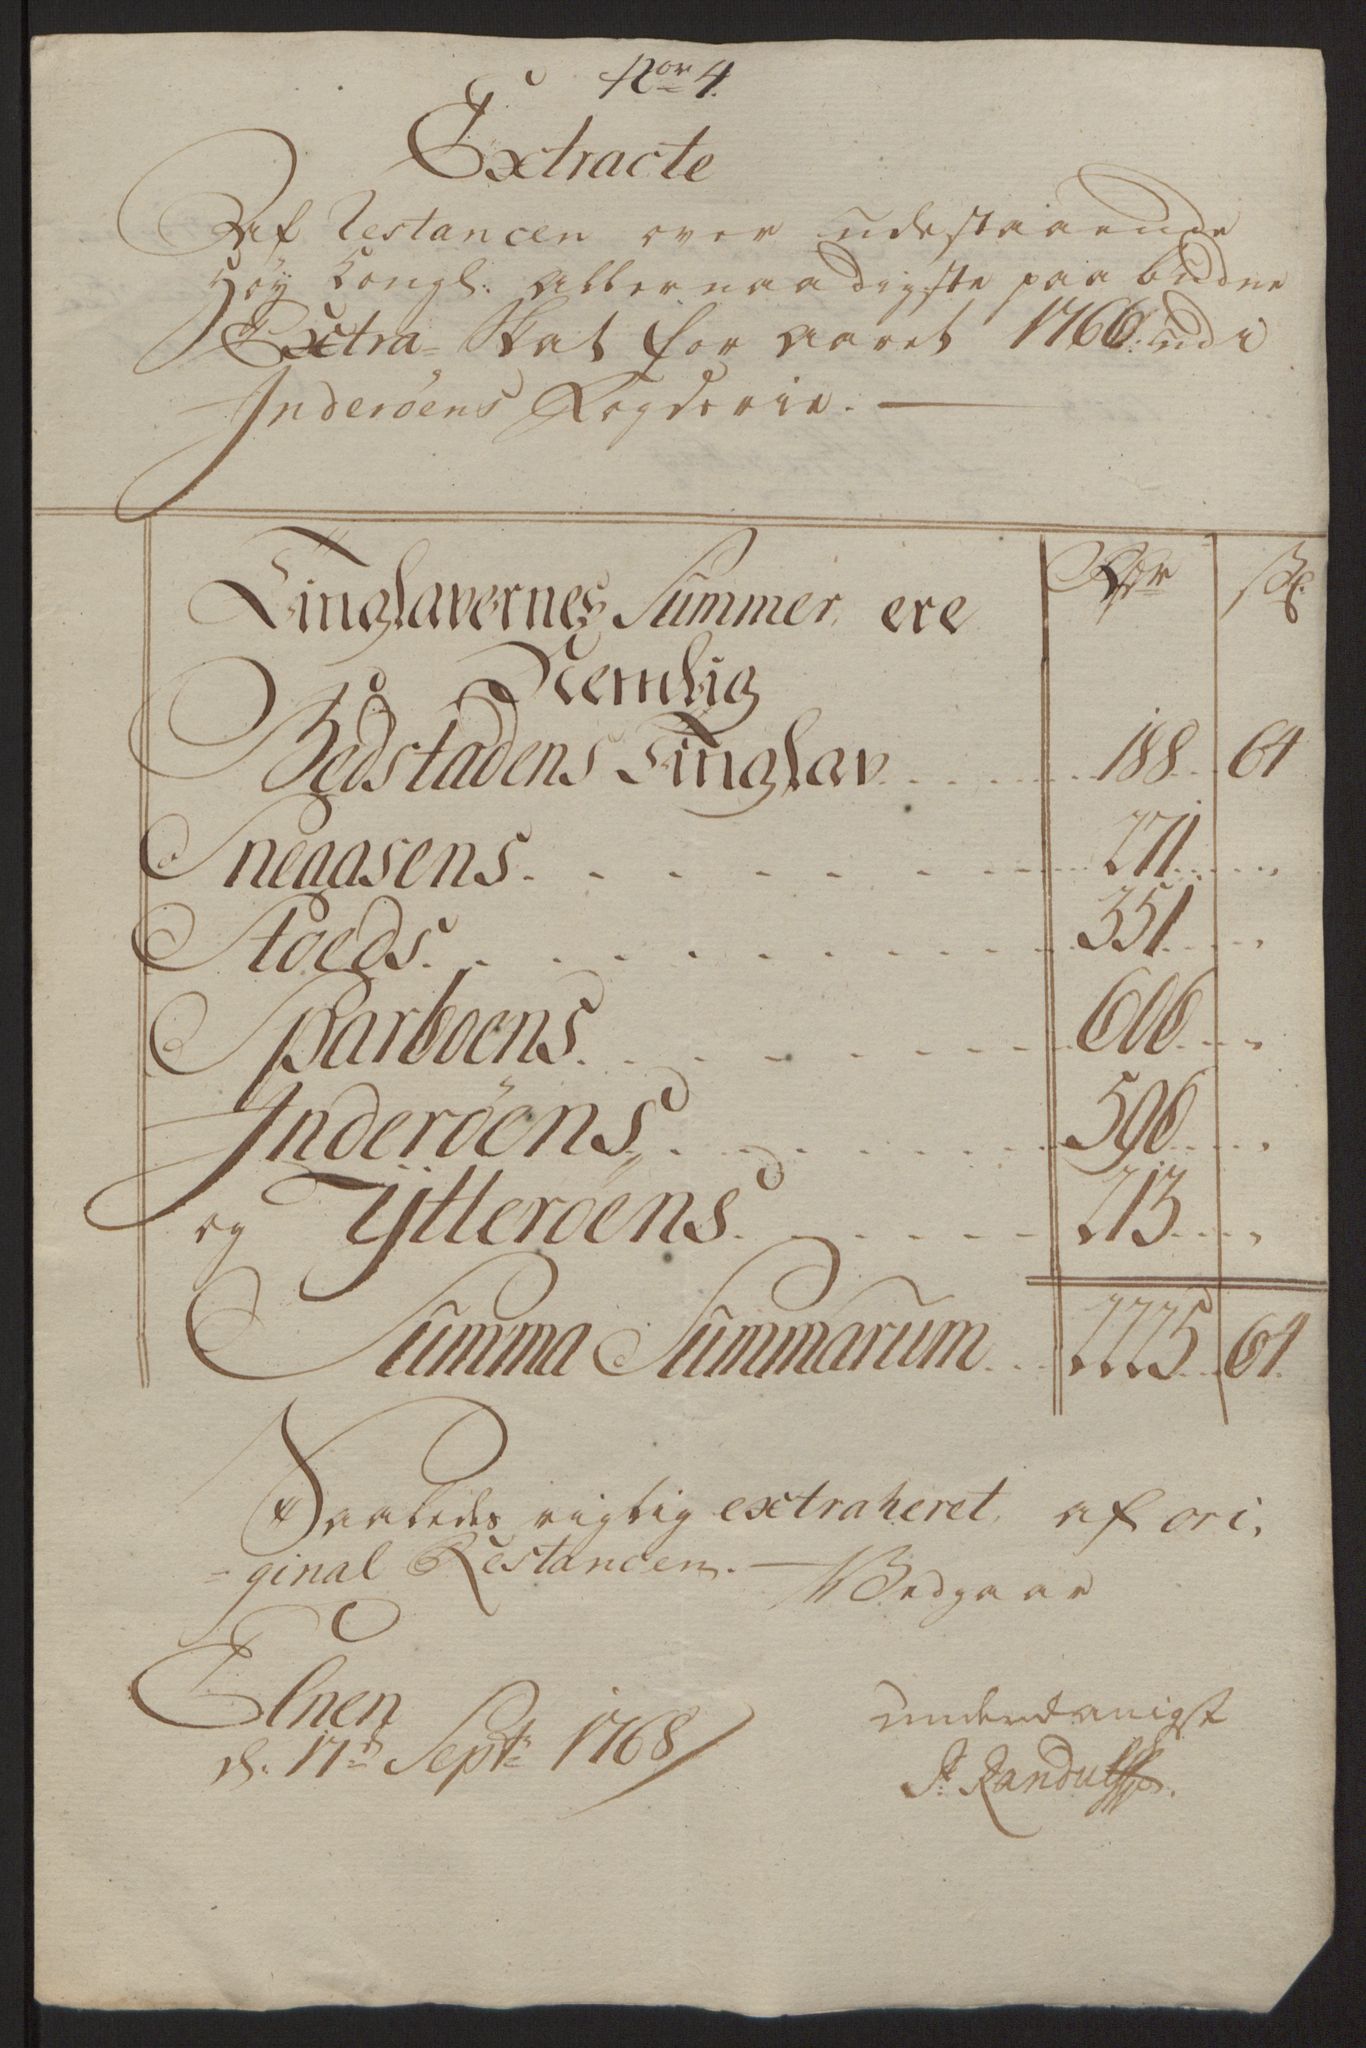 Nor 4.
Extracte
Af Restancen over udestaaende
Höy Kongl: Allernaadigste paa budne
Extra-Skat for Aaret 1766. udi
Inderöens Fogderie.
Tinglavernes Summer ere Rdr ß
Nemlig
Bedstadens Tinglav 188 64
Sneaasens 271
Stoeds 351
Sparboens 606
Inderöens 596
og Ytteröens 213
Summa Summarum 2225 64
Saaledes rigtig extraheret af ori-
ginal Restancen. Bedgaar
Elnen
d. 17d Septr 1768 underdanigst
Randulff.